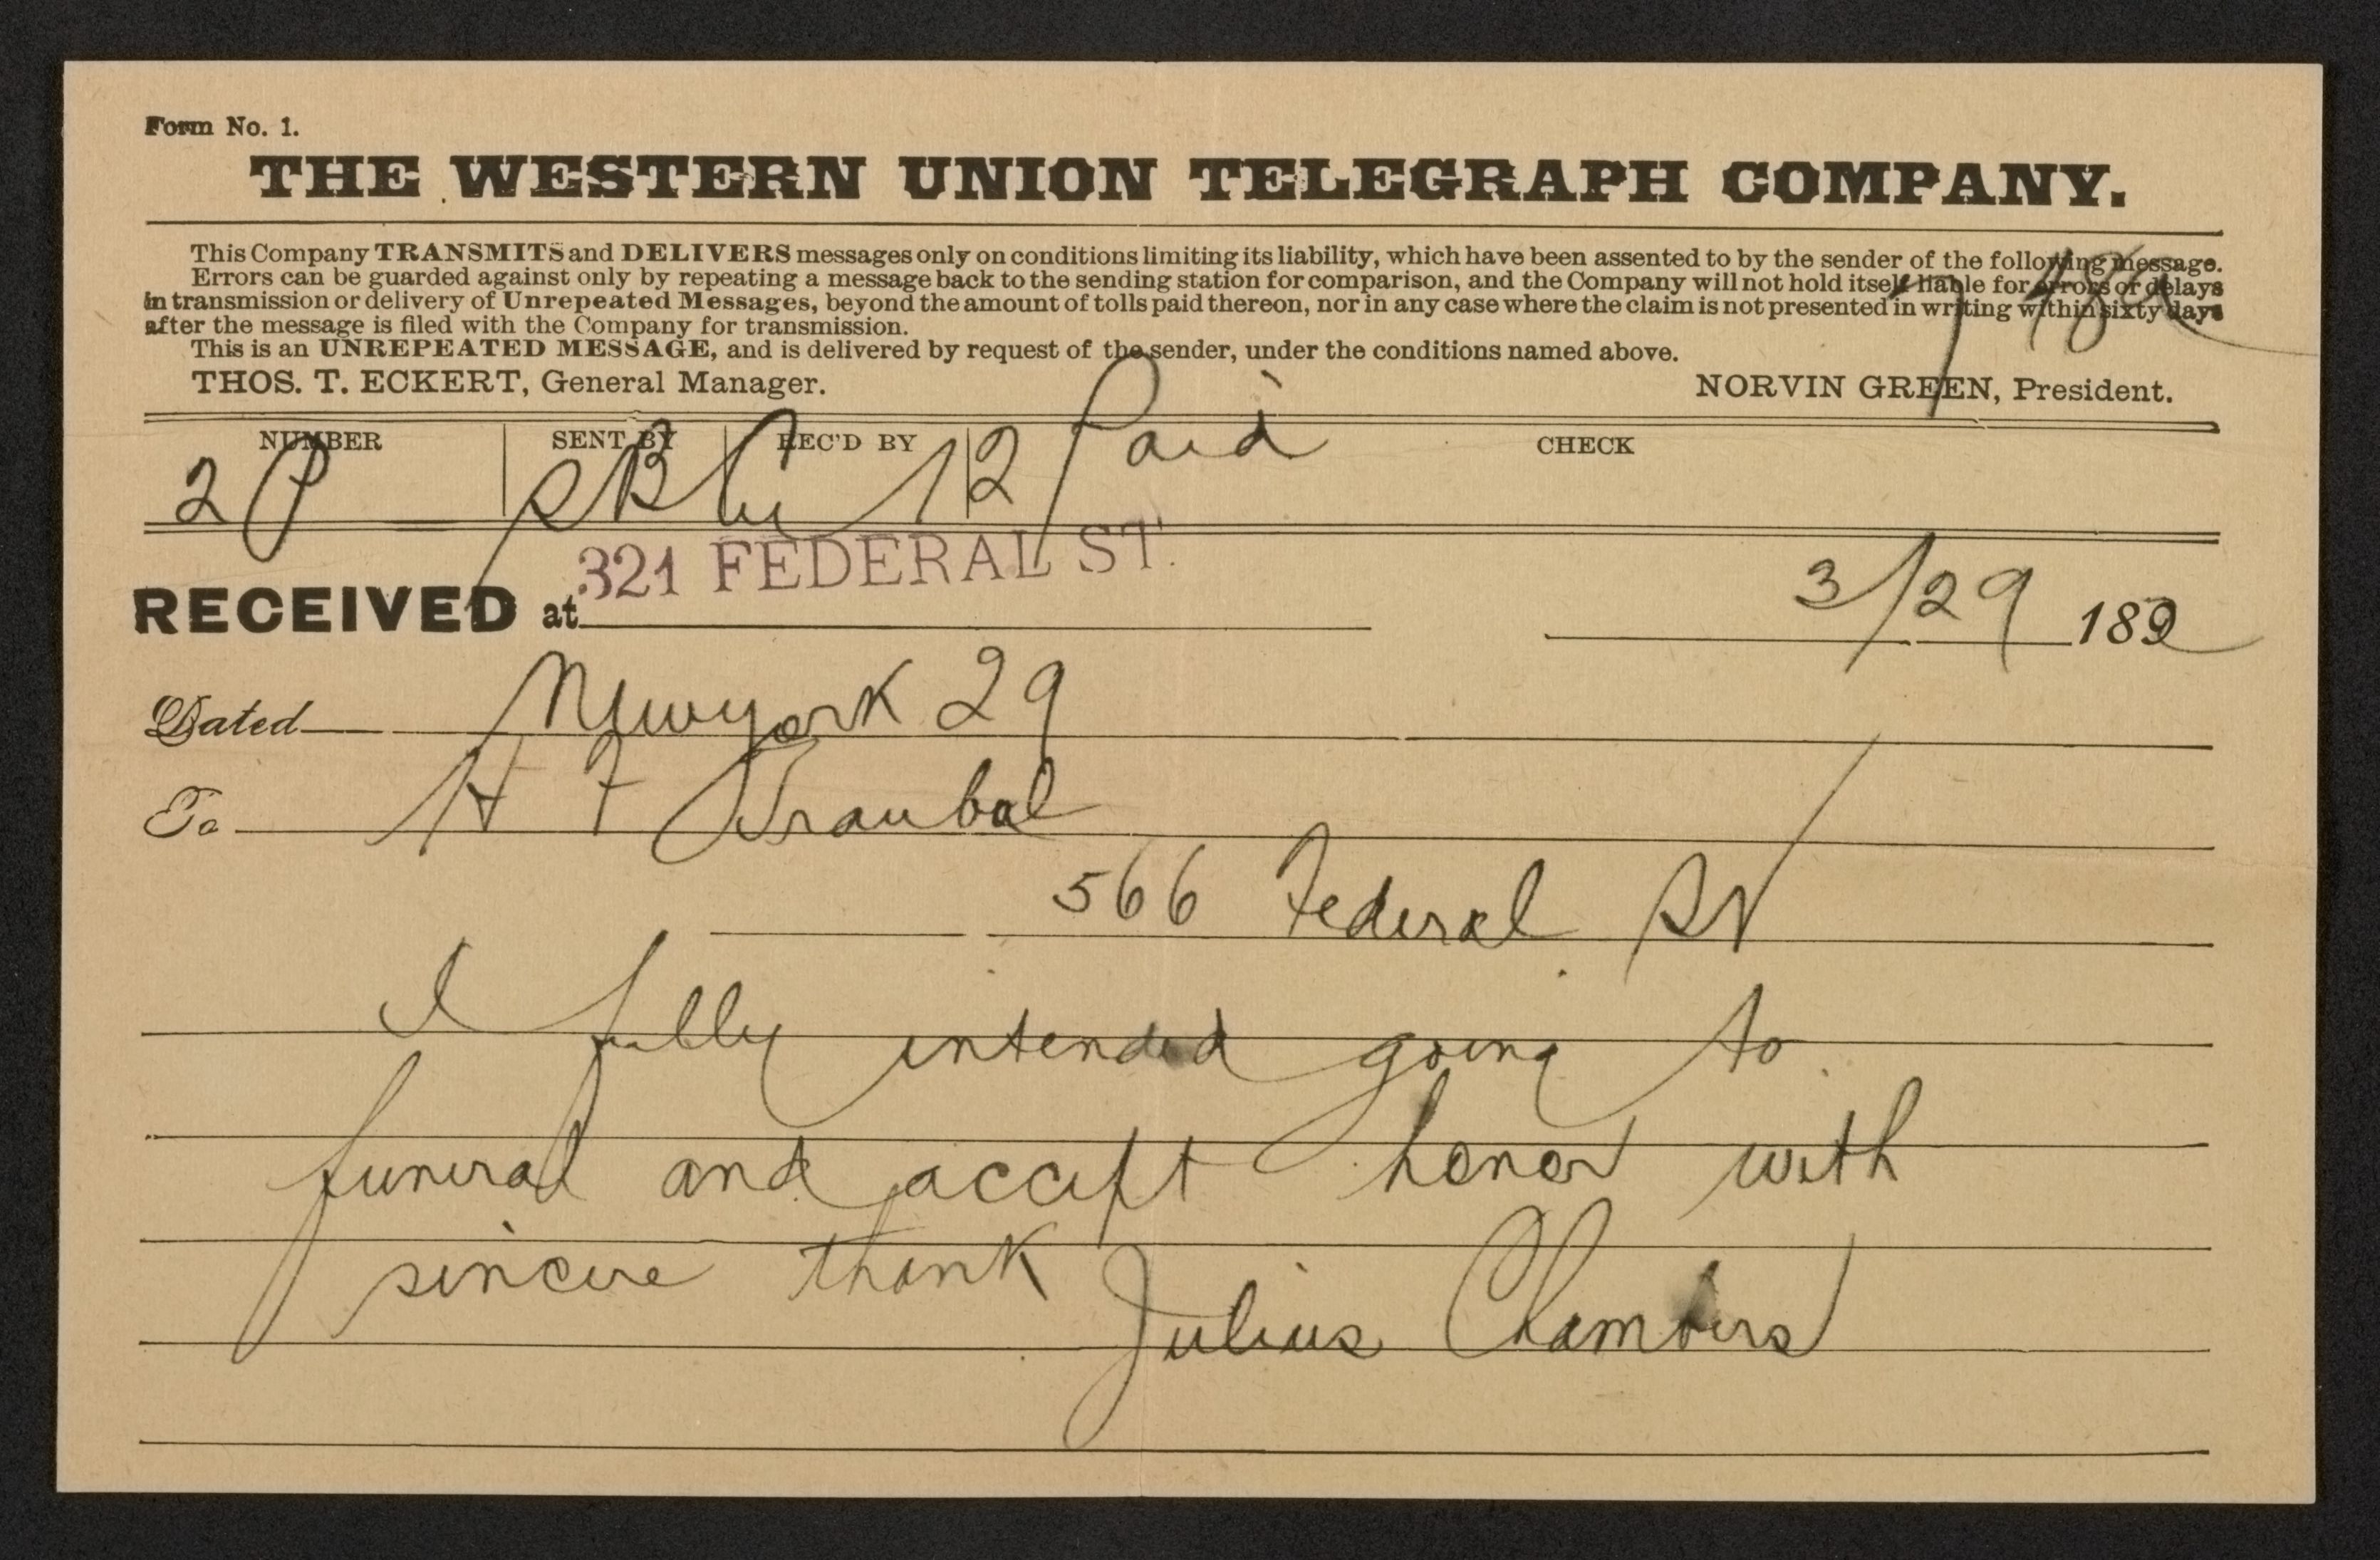 Form No. 1.
THE WESTERN UNION TELEGRAPH COMPANY.
This Company TRANSMITS and DELIVERS messages only on conditions limiting its liability, which have been assented to by the sender of the following message.
Errors can be guarded against only by repeating a message back to the sending station for comparison, and the Company will not hold itself liable for errors or delays
in transmission or delivery of Unrepeated Messages, beyond the amount of tolls paid thereon, nor in any case where the claim is not presented in writing within sixty days
after the message is filed with the Company for transmission.
This is an UNREPEATED MESSAGE, and is delivered by request of the sender, under the conditions named above.
THOS. T. ECKERT, General Manager. NORVIN GREEN, President.
NUMBER SENT BY REC'D BY CHECK
2 P 12 Paid
321 FEDERAL ST.
RECEIVED at 3/29 1892
Dated Newyork 29
To H F Traubal
566 Federal St
I fully intended going to
funeral and accept honor with
sincere thank
Julius Chambers